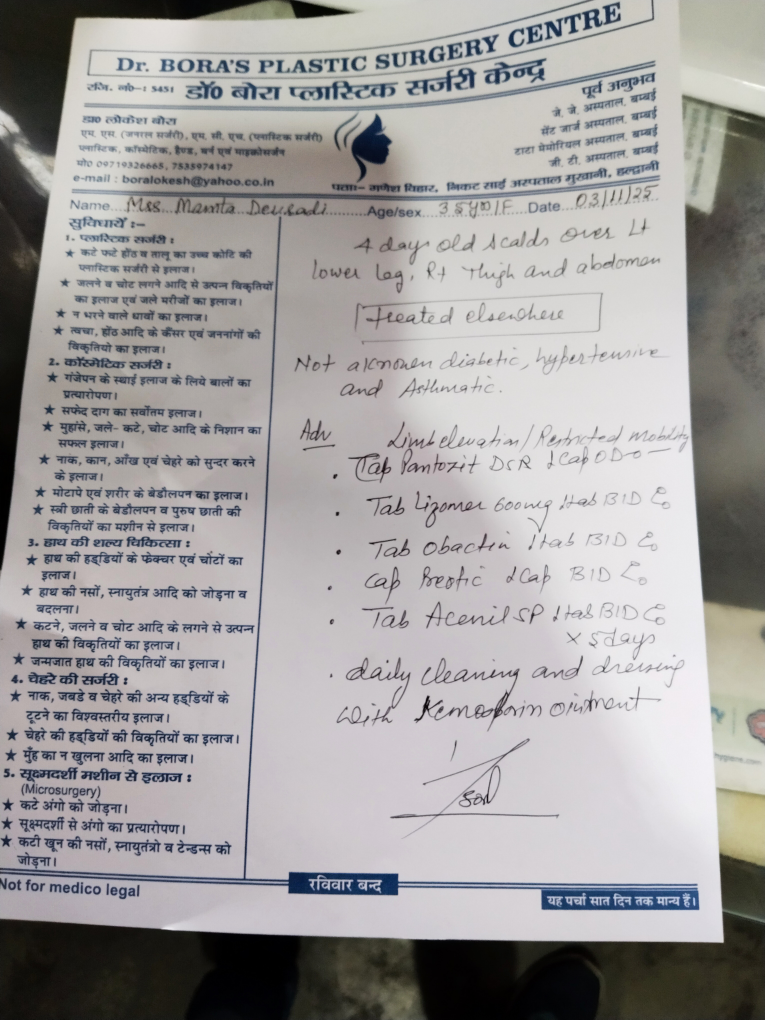 Dr. BORA'S PLASTIC SURGERY CENTRE
रजि. नं०-: 5451 डॉ० बोरा प्लास्टिक सर्जरी केन्द्र
डा० लोकेश बोरा
एम. एस. (जनरल सर्जरी), एम. सी. एच. (प्लास्टिक सर्जरी)
प्लास्टिक, कॉस्मेटिक, हैण्ड, बर्न एवं माइक्रोसर्जन
मो० 09719326665, 7535974147
e-mail : boralokesh@yahoo.co.in
पूर्व अनुभव
जे. जे. अस्पताल, बम्बई
सेंट जार्ज अस्पताल, बम्बई
टाटा मेमोरियल अस्पताल, बम्बई
जी. टी. अस्पताल, बम्बई
पताः- गणेश विहार, निकट साई अस्पताल मुखानी, हल्द्वानी
Name Mrs. Mamta Age/sex 35y/F Date 03/11/25
सुविधायें :-
1. प्लास्टिक सर्जरी :
★ कटे फटे होंठ व तालू का उच्च कोटि की
प्लास्टिक सर्जरी से इलाज।
★ जलने व चोट लगने आदि से उत्पन्न विकृतियों
का इलाज एवं जले मरीजों का इलाज।
★ न भरने वाले घावों का इलाज।
★ त्वचा, होंठ आदि के कैंसर एवं जननांगों की
विकृतियो का इलाज।
2. कॉस्मेटिक सर्जरी :
★ गंजेपन के स्थाई इलाज के लिये बालों का
प्रत्यारोपण।
★ सफेद दाग का सर्वोत्तम इलाज।
★ मुहांसे, जले- कटे, चोट आदि के निशान का
सफल इलाज।
★ नाक, कान, आँख एवं चेहरे को सुन्दर करने
के इलाज।
★ मोटापे एवं शरीर के बेडौलपन का इलाज।
★ स्त्री छाती के बेडौलपन व पुरुष छाती की
विकृतियों का मशीन से इलाज।
3. हाथ की शल्य चिकित्सा :
★ हाथ की हड्डियों के फ्रेक्चर एवं चोंटों का
इलाज।
★ हाथ की नसों, स्नायुतंत्र आदि को जोड़ना व
बदलना।
★ कटने, जलने व चोट आदि के लगने से उत्पन्न
हाथ की विकृतियों का इलाज।
★ जन्मजात हाथ की विकृतियों का इलाज।
4. चेहरे की सर्जरी :
★ नाक, जबडे व चेहरे की अन्य हड्डियों के
टूटने का विश्वस्तरीय इलाज।
★ चेहरे की हड्डियों की विकृतियों का इलाज।
★ मुँह का न खुलना आदि का इलाज।
5. सूक्ष्मदर्शी मशीन से इलाज :
(Microsurgery)
★ कटे अंगो को जोड़ना।
★ सूक्ष्मदर्शी से अंगो का प्रत्यारोपण।
★ कटी खून की नसों, स्नायुतंत्रो व टेन्डन्स को
जोड़ना।
4 days old scalds over Lt
lower leg, Rt thigh and abdomen
Treated elsewhere
Not a known diabetic, hypertensive
and Asthmatic.
Adv Limb elevation/Restricted mobility
. Cap Pantozit DSR 1 Cap OD
. Tab Lizomer 600mg 1tab BID
. Tab Obactin 1tab BID
. Cap 1Cap BID
. Tab Acenil SP 1tab BID
x 5 days
. daily cleaning and dressing
with ointment
Not for medico legal
रविवार बन्द
यह पर्चा सात दिन तक मान्य हैं।